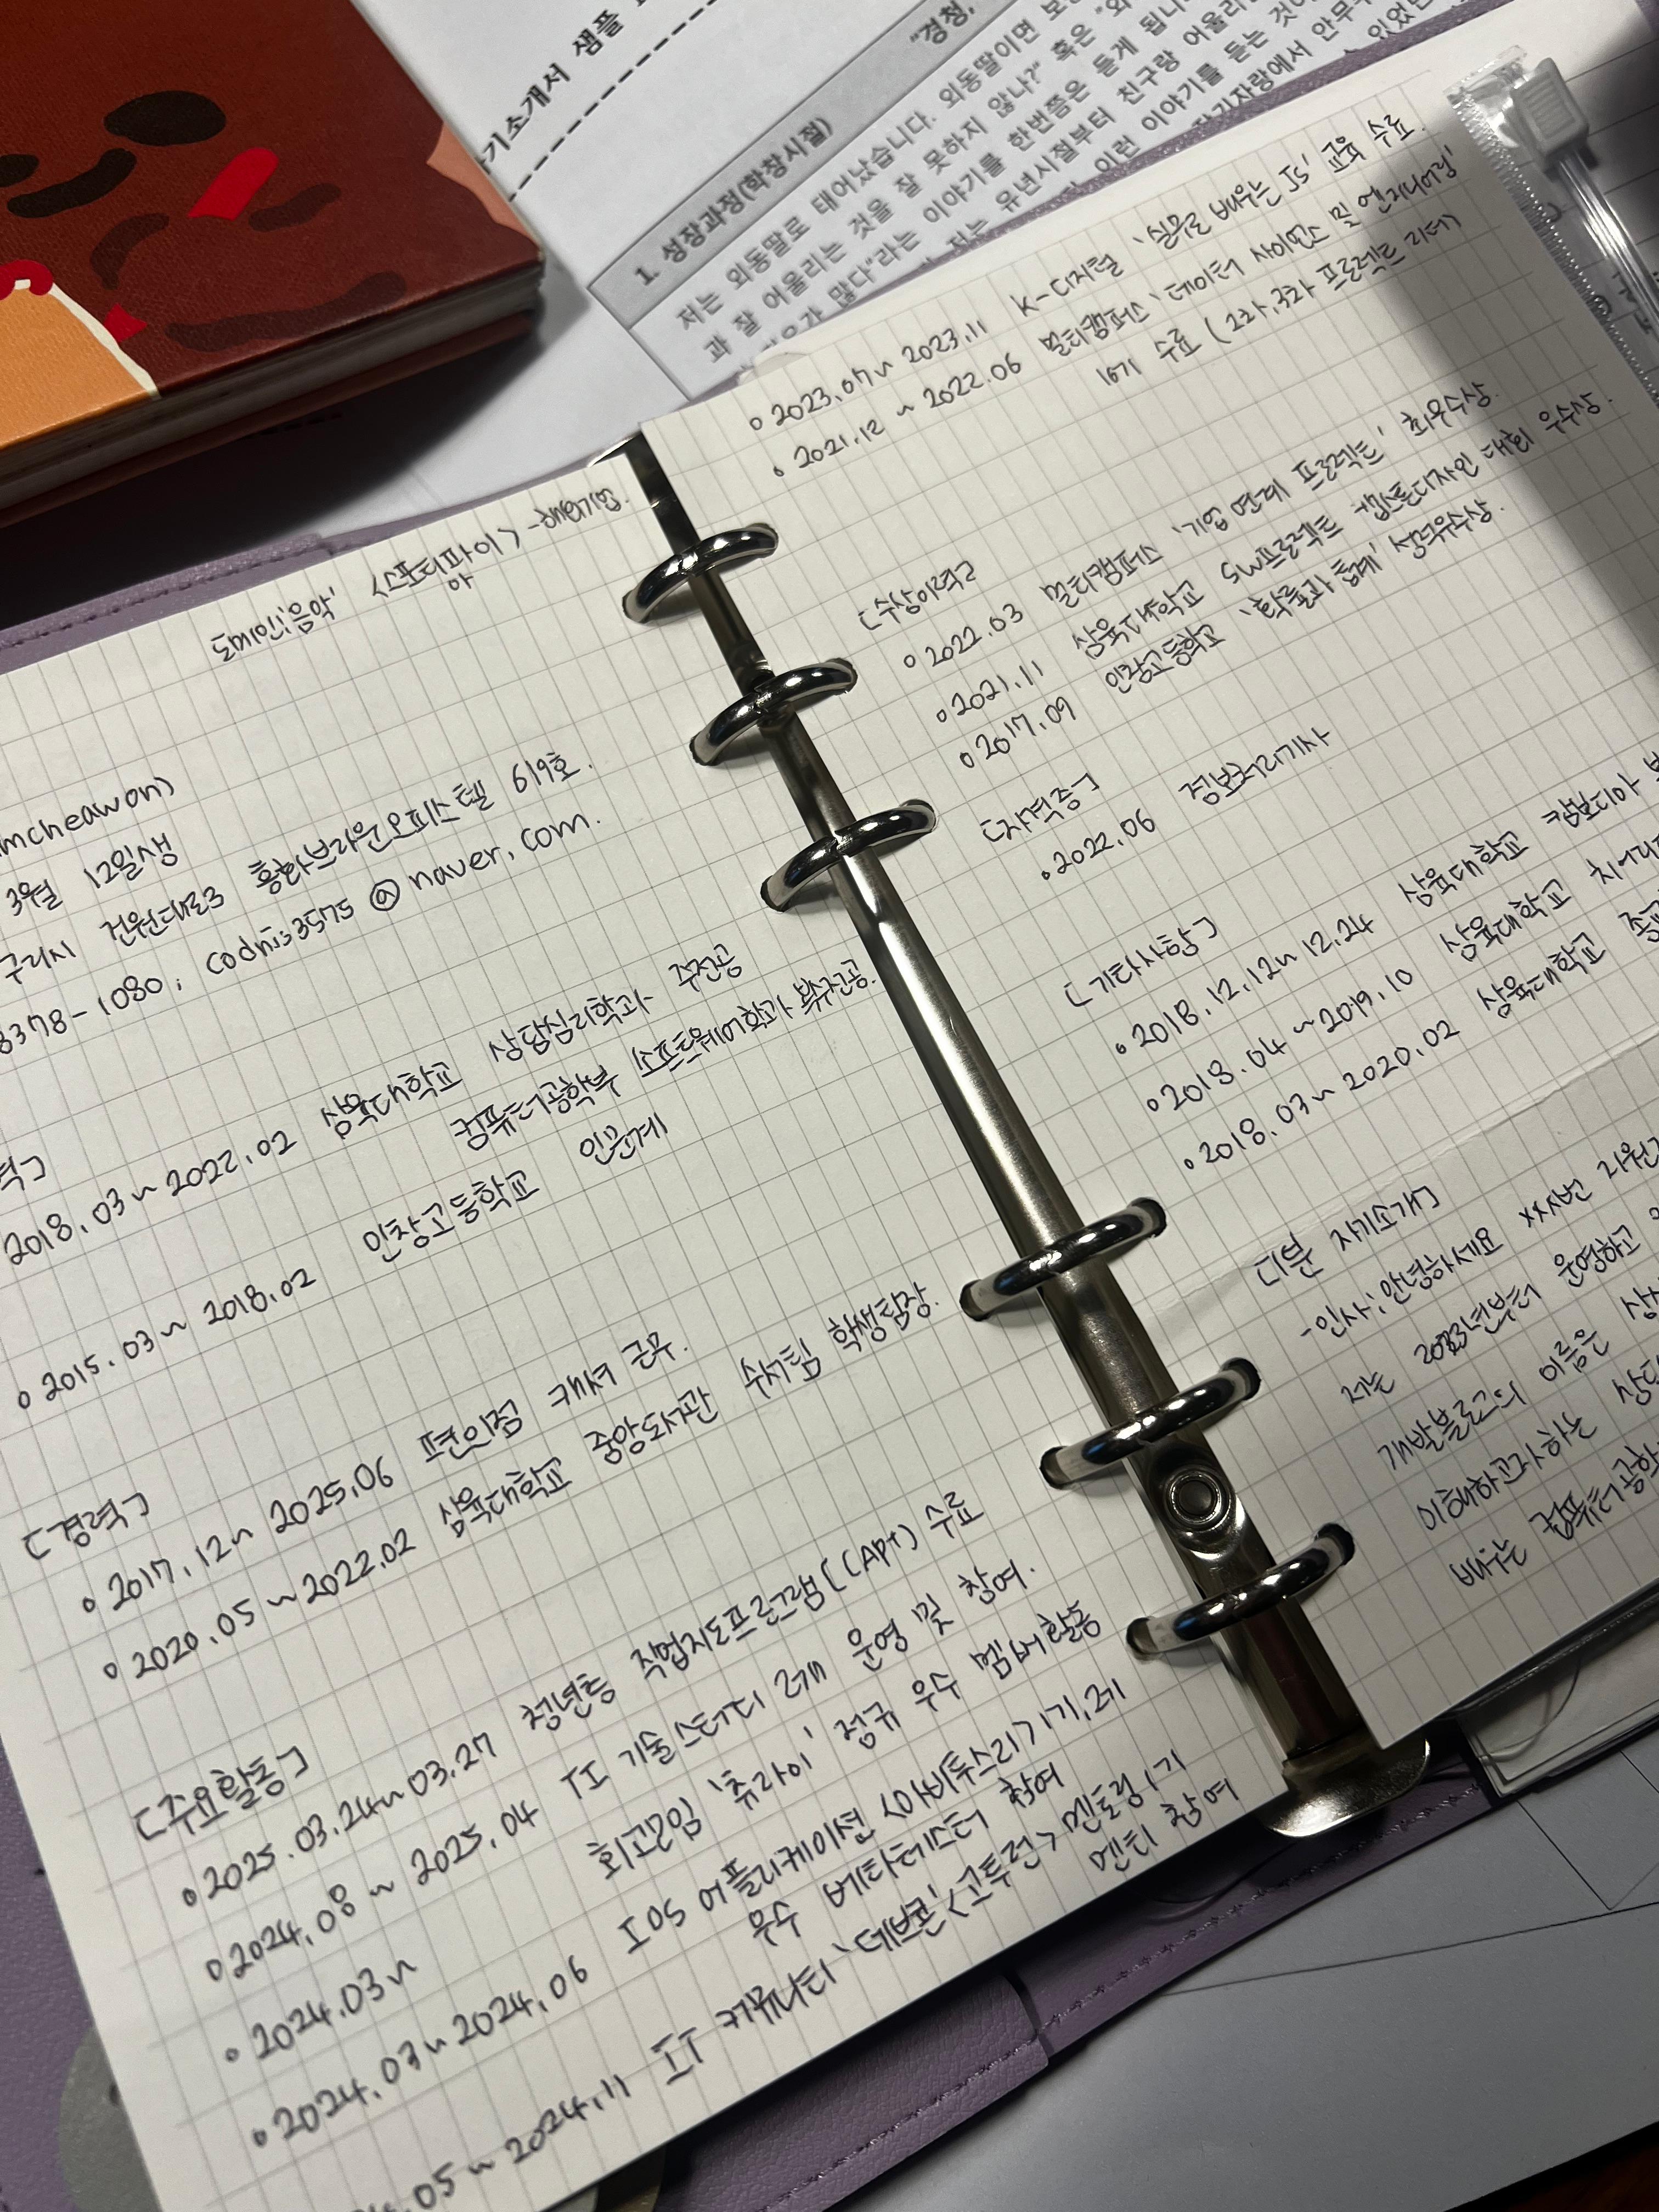 기소개서 샘플
"경청,
1. 성장과정(학창시절)
저는 외동딸로 태어났습니다. 외동딸이면
과 잘 어울리는 것을 잘 못하지 않나?" 혹은
많다"라는 이야기를 한번쯤은 듣게 됩니
저는 유년시절부터 친구랑 어울리
이런 이야기를 듣는 것이
자기자랑에서 안무
있었던
도메인;음악' <스포티파이> - 해외기업.
아
mcheawon)
3월 12일생
구리시 건원대로3 홍화브라운오피스텔 619호.
8378-1080; codnis3575@naver.com.
력]
2018.03 ~ 2022.02 삼육대학교 상담심리학과 주전공
컴퓨터공학부 소프트웨어학과 복수전공.
• 2015.03 ~ 2018.02 인창고등학교 인문계
[경력]
• 2017.12 ~ 2025.06 편의점 캐셔 근무.
• 2020.05 ~ 2022.02 삼육대학교 중앙도서관 수서팀 학생팀장.
[주요활동]
• 2025.03.24 ~ 03.27 청년층 직업지도프로그램[CAP+) 수료
• 2024.08 ~ 2025.04 IT 기술스터디 2개 운영 및 참여.
• 2024.03 ~ 회고모임 '츄라이' 정규 우수 멤버활동
• 2024.03 ~ 2024.06 IOS 어플리케이션 <아비투스리> 1기, 2기
우수 베타테스터 참여
.05 ~ 2024.11 IT 커뮤니티 '데브콘;<고투런> 멘토링 1기
멘티 참여
• 2023.07 ~ 2023.11 K-디지털 '실무로 배우는 JS' 교육 수료
• 2021.12 ~ 2022.06 멀티캠퍼스 '데이터 사이언스 및 엔지니어링'
16기 수료 (2차, 3차 프로젝트 리더)
[수상이력]
• 2022.03 멀티캠퍼스 '기업 연계 프로젝트' 최우수상.
• 2021.11 삼육대학교 SW프로젝트 캡스톤디자인 대회 우수상.
• 2017.09 인창고등학교 '확률과 통계' 성적우수상.
[자격증]
• 2022.06 정보처리기사
[기타사항]
• 2018.12.12 ~ 12.24 삼육대학교 캄보디아
• 2018.04 ~ 2019.10 삼육대학교 치어리
• 2018.03 ~ 2020.02 삼육대학교
[1분 자기소개]
- 인사; 안녕하세요 xxx번 지원
저는 2023년부터 운영하고
개발블로그의 이름은
이해하고자하는
배우는 컴퓨터공학